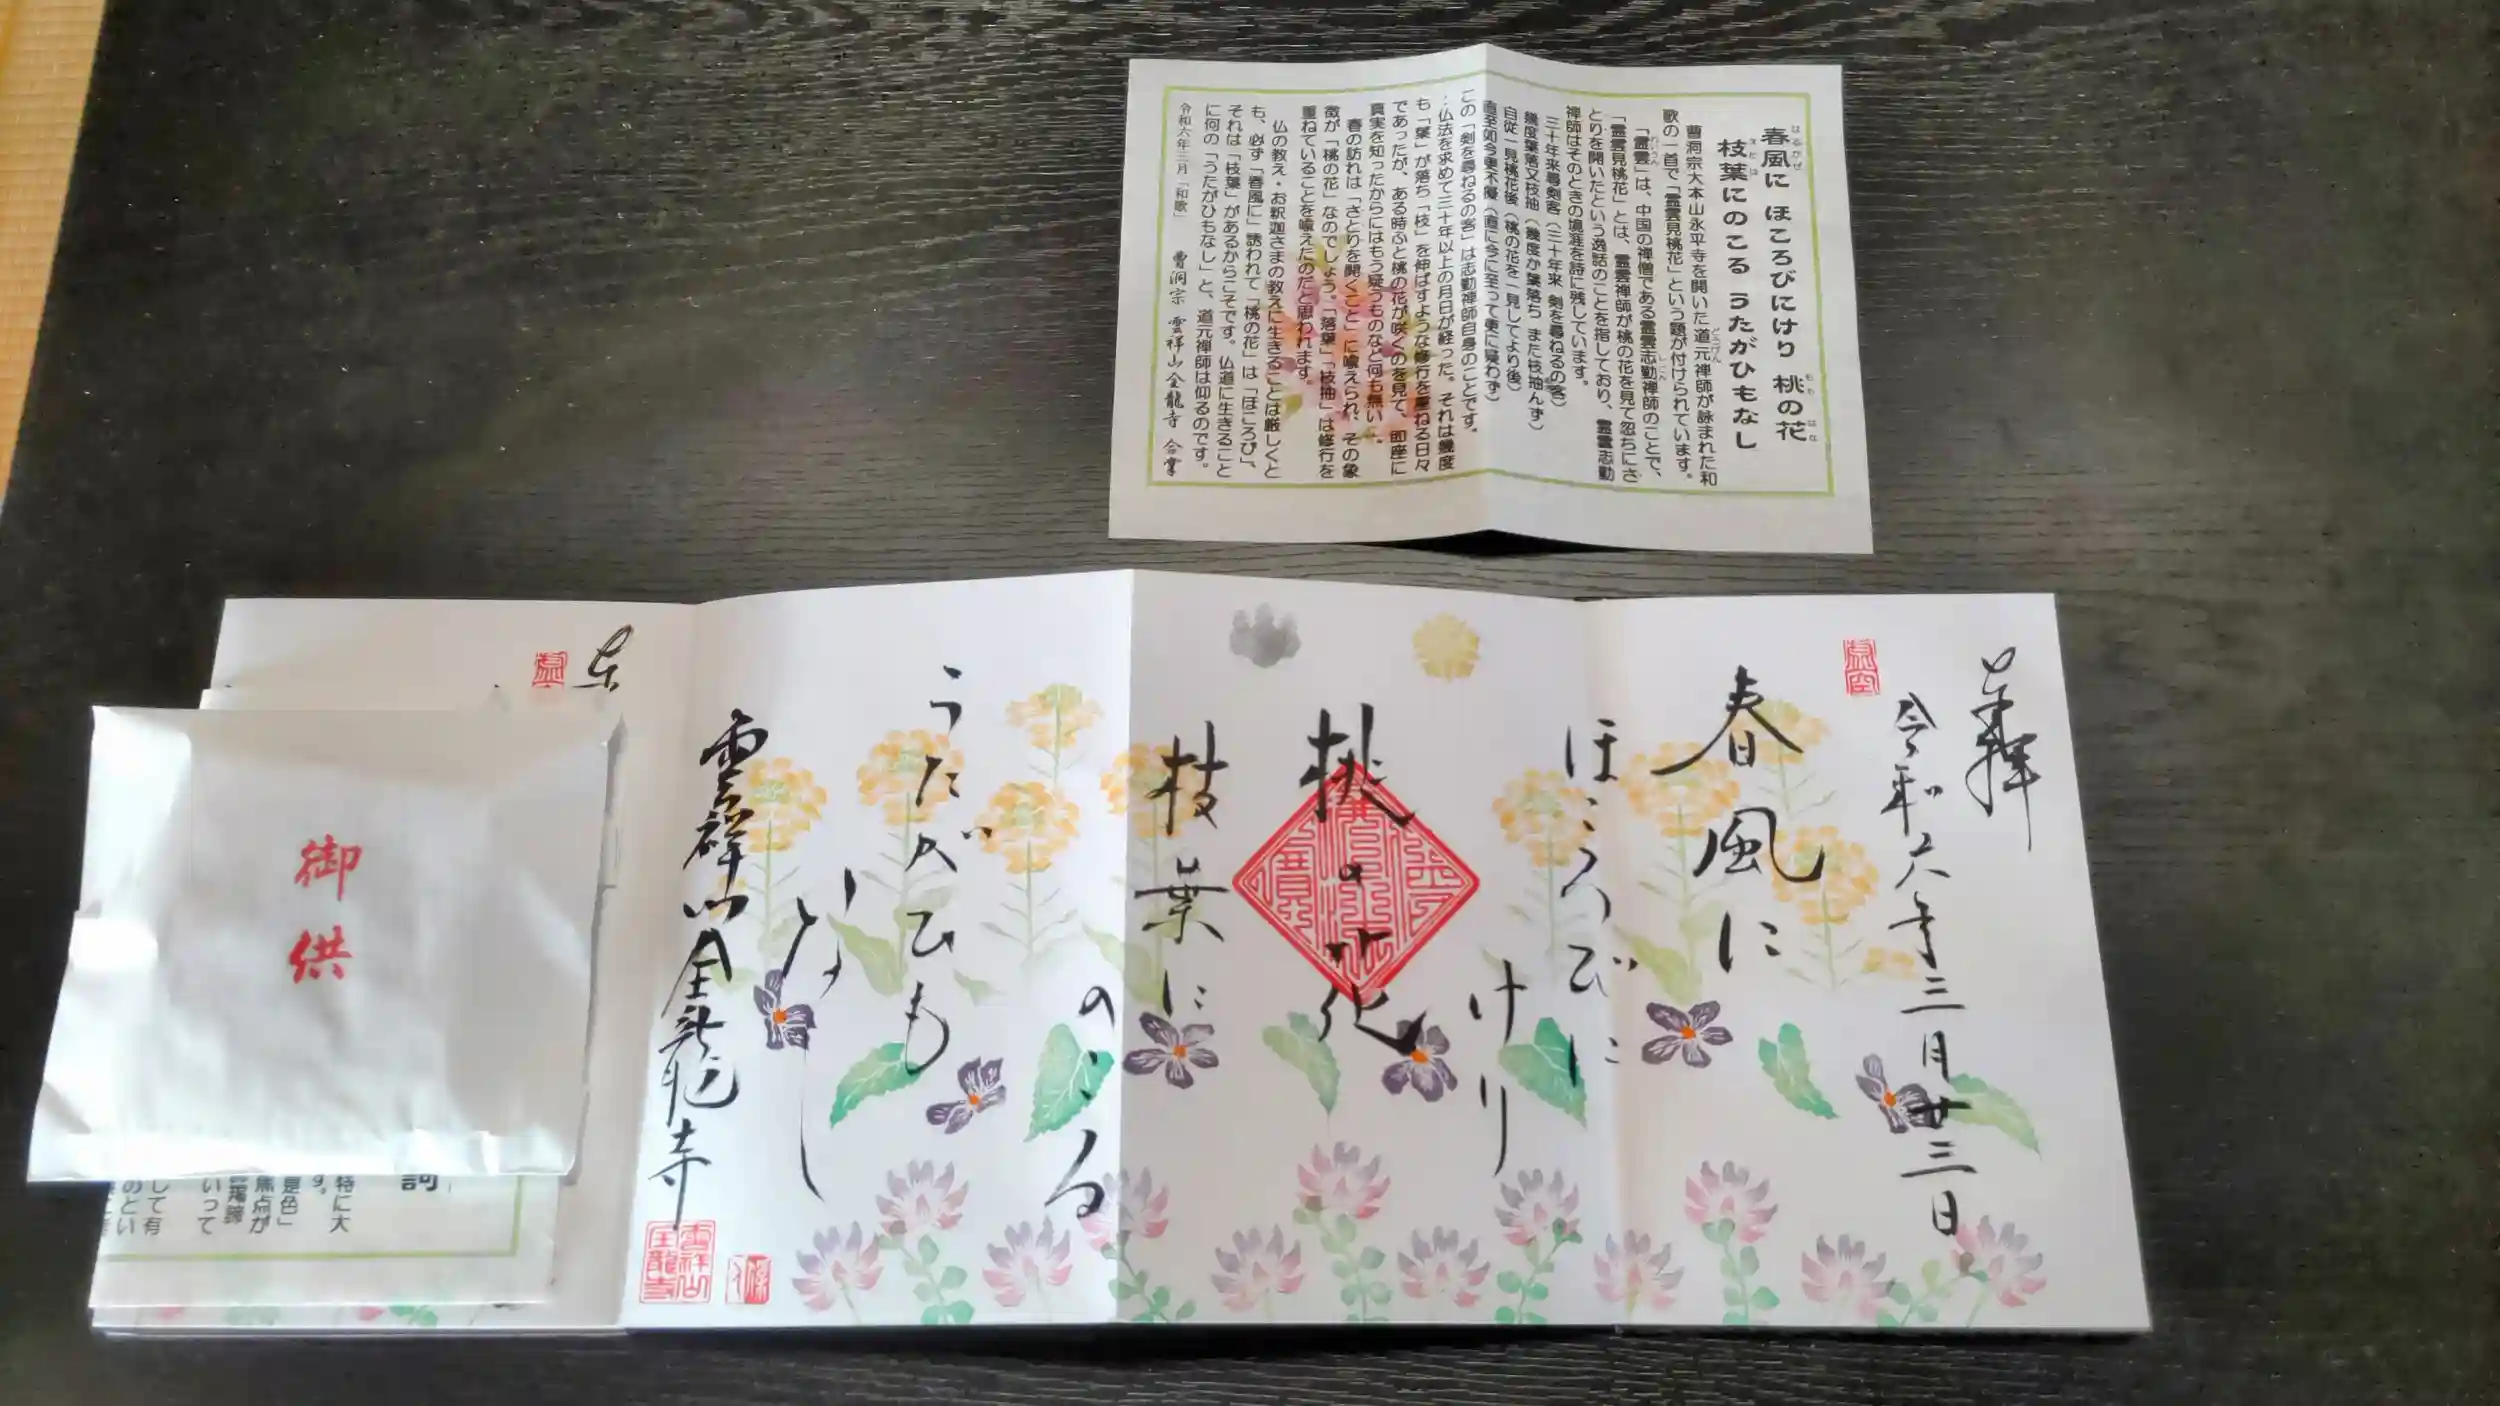 春風に ほころびにけり 桃の花
はるかぜ
もも はな
枝葉にのこる うたがひもなし
えだは
曹洞宗大本山永平寺を開いた道元禅師が詠まれた和
どうげん
歌の一首で「霊雲見桃花」という題が付けられています。
「霊雲」は、中国の禅僧である霊雲志勤禅師のことで、
れいうん
しごん
「霊雲見桃花」とは、霊雲禅師が桃の花を見て忽ちにさ
とりを開いたという逸話のことを指しており、霊雲志勤
禅師はそのときの境涯を詩に残しています。
三十年来尋剣客(三十年来 剣を尋ねるの客)
幾度葉落又枝抽(幾度か葉落ち また枝抽んず)
自従一見桃花後(桃の花を一見してより後)
直至如今更不疑(直に今に至って更に疑わず)
この「剣を尋ねるの客」は志勤禅師自身のことです。
仏法を求めて三十年以上の月日が経った。それは幾度
も「葉」が落ち「枝」を伸ばすような修行を重ねる日々
であったが、ある時ふと桃の花が咲くのを見て、即座に
真実を知ったからにはもう疑うものなど何も無い」。
春の訪れは「さとりを開くこと」に喩えられ、その象
徴が「桃の花」なのでしょう。「落葉」「枝抽」は修行を
重ねていることを喩えたのだと思われます。
仏の教え・お釈迦さまの教えに生きることは厳しくと
も、必ず「春風に」誘われて「桃の花」は「ほころび」、
それは「枝葉」があるからこそです。仏道に生きること
に何の「うたがひもなし」と、道元禅師は仰るのです。
令和六年三月「和歌」 曹洞宗 雲祥山全龍寺 合掌
奉拝
令和六年三月廿三日
春風に
ほころびに
けり
桃の花
枝葉に
のこる
うたがひも
なし
雲祥山全龍寺
雲祥山
全龍寺
御供
詞
特に大
す。
是色」
焦点が
いって
して有
のとい